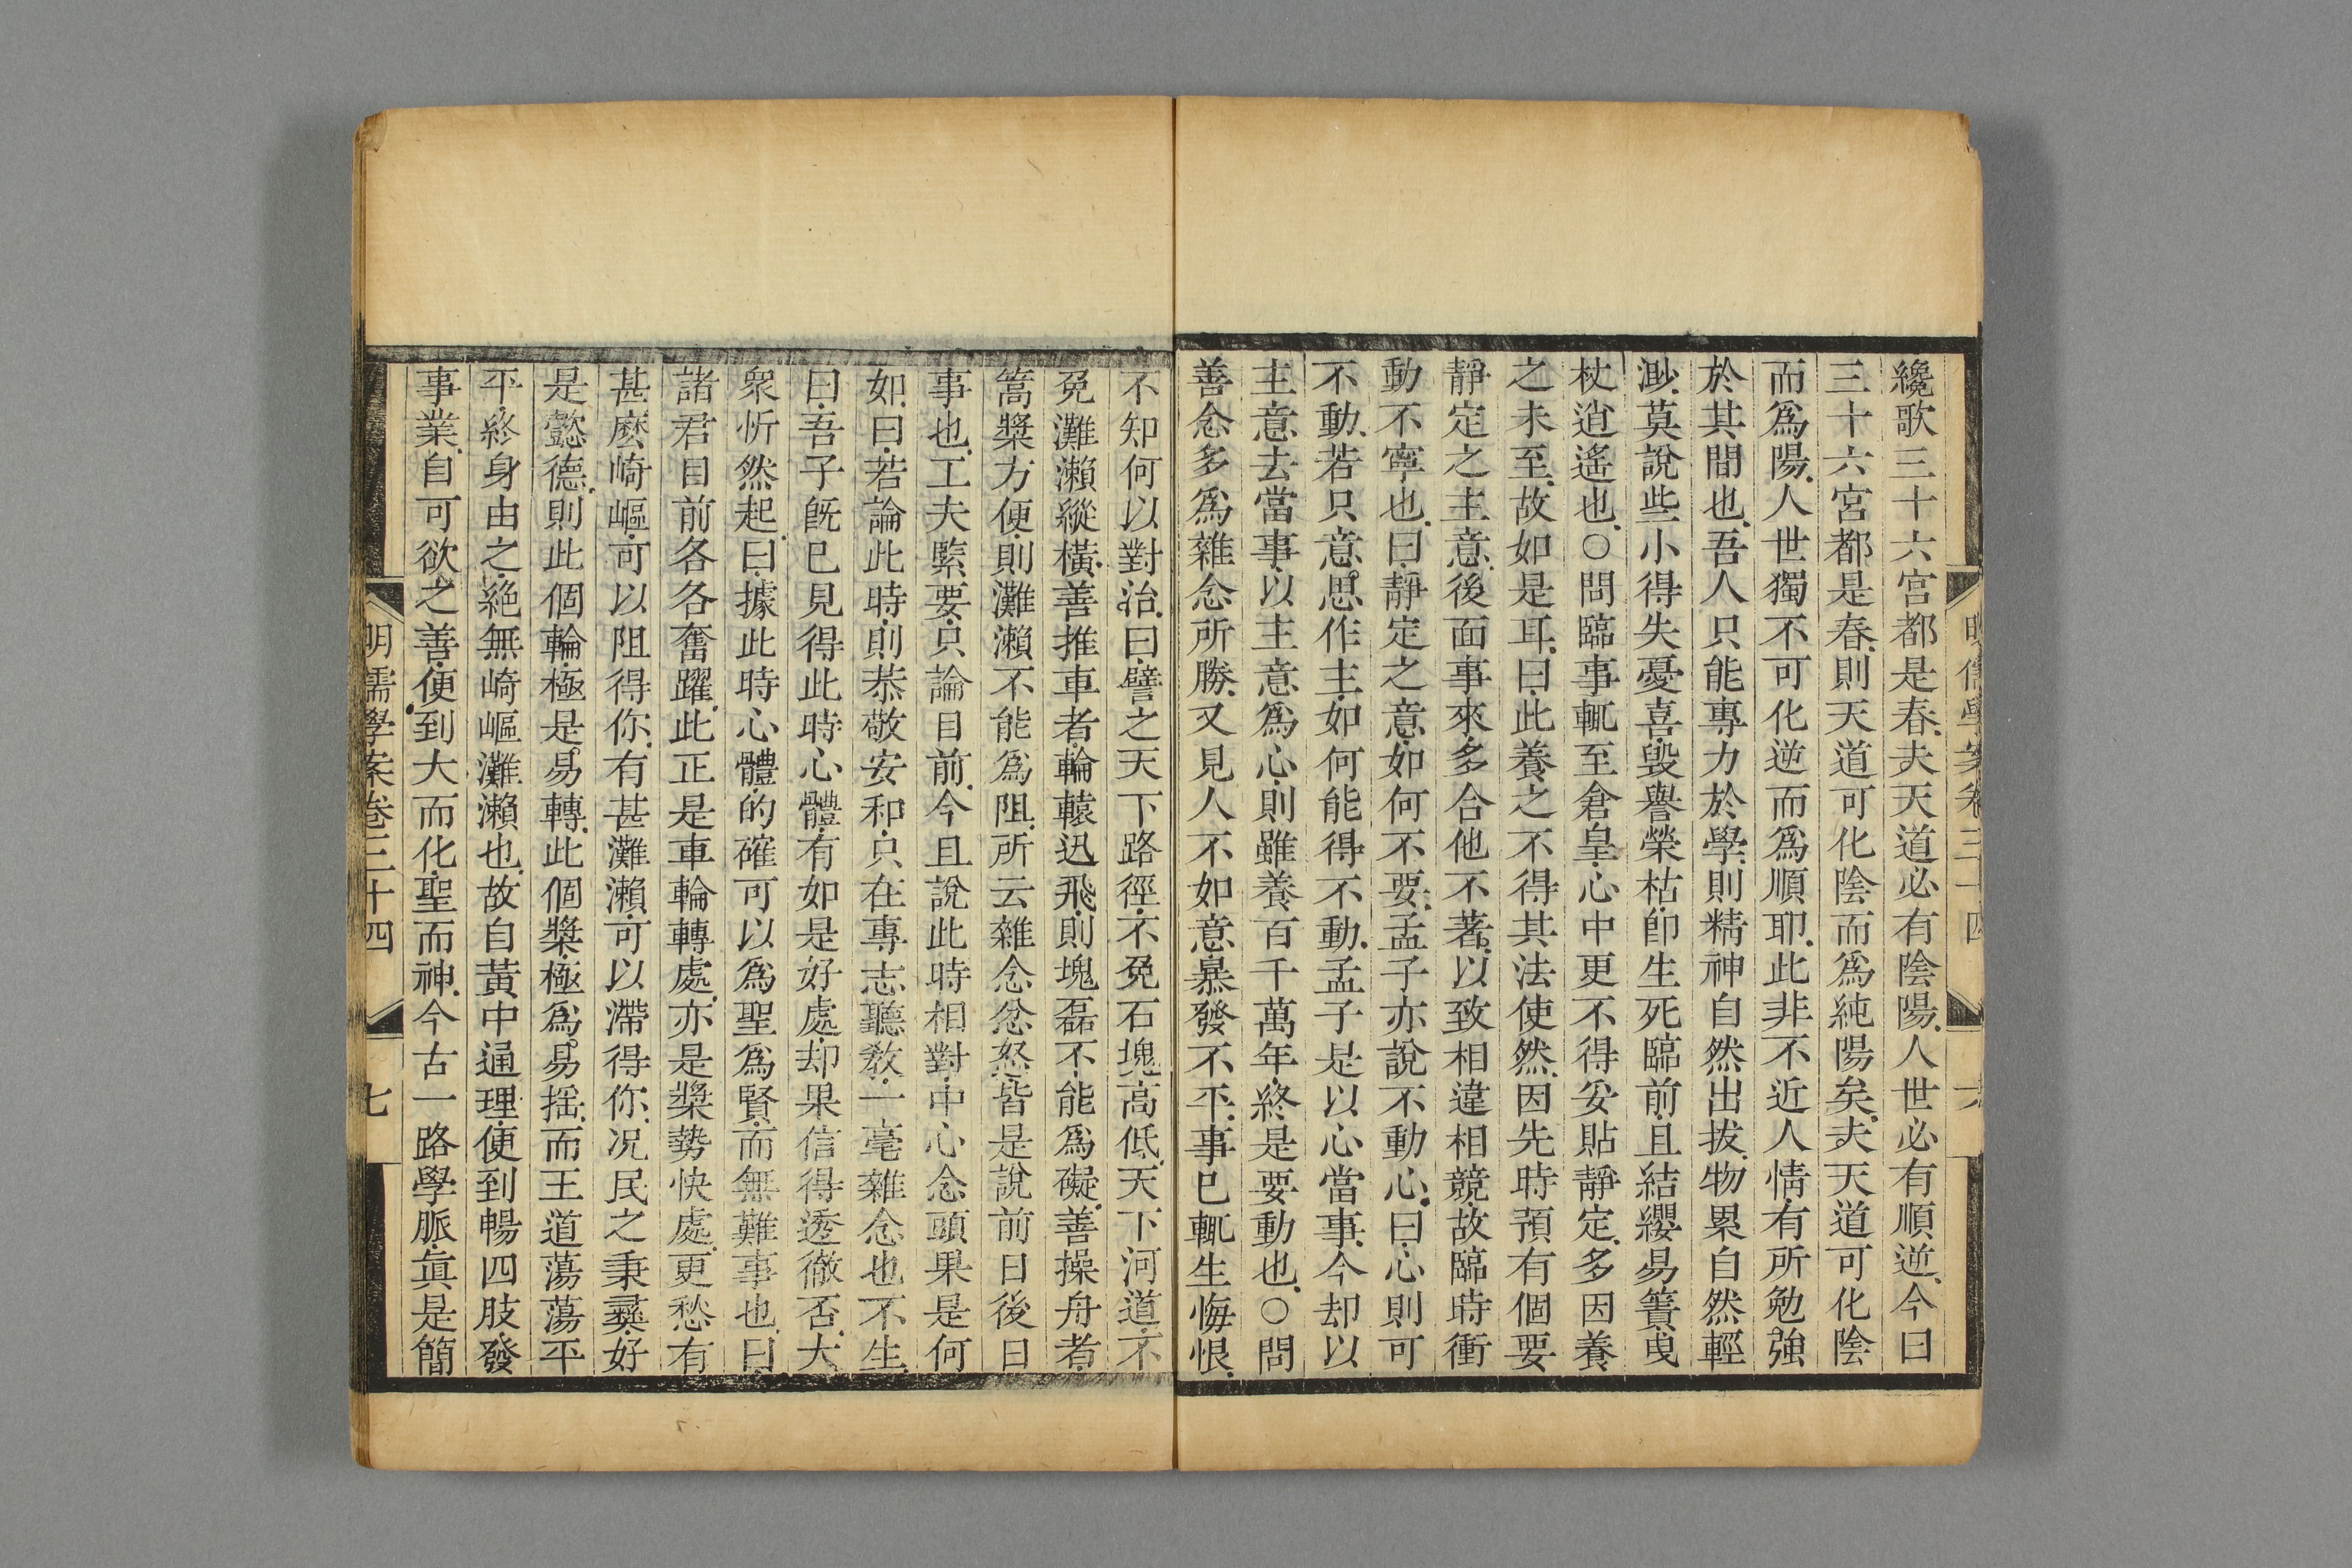 纔歌三十六宮都是春夫天道必有陰陽人世必有順逆今曰
三十六宮都是春則天道可化陰而爲純陽矣夫天道可化陰
而爲陽人世獨不可化逆而爲順耶此非不近人情有所勉強
於其間也吾人只能專力於學則精神自然出拔物累自然輕
渺莫說些小得失憂喜毀譽榮枯卽生死臨前且結纓易簀曳
杖逍遙也○問臨事輒至倉皇心中更不得妥貼靜定多因養
之未至故如是耳曰此養之不得其法使然因先時預有個要
靜定之主意後面事來多合他不著以致相違相競故臨時衝
動不寧也曰靜定之意如何不要孟子亦說不動心曰心則可
不動若只意思作主如何能得不動孟子是以心當事今却以
主意去當事以主意爲心則雖養百千萬年終是要動也○問
善念多爲雜念所勝又見人不如意暴發不平事已輒生悔恨
不知何以對治曰譬之天下路徑不免石塊高低天下河道不
免灘瀨縱橫善推車者輪轅迅飛則塊磊不能爲礙善操舟者
篙槳方便則灘瀨不能爲阻所云雜念忿怒皆是說前日後日
事也工夫緊要只論目前今且說此時相對中心念頭果是何
如曰若論此時則恭敬安和只在專志聽教一毫雜念也不生
曰吾子旣已見得此時心體有如是好處却果信得透徹否大
衆忻然起曰據此時心體的確可以爲聖爲賢而無難事也曰
諸君目前各各奮躍此正是車輪轉處亦是槳勢快處更愁有
甚麽崎嶇可以阻得你有甚灘瀨可以滯得你况民之秉彝好
是懿德則此個輪極是易轉此個槳極爲易揺而王道蕩蕩平
平終身由之絕無崎嶇灘瀨也故自黃中通理便到暢四肢發
事業自可欲之善便到大而化聖而神今古一路學脈眞是簡
明儒學案卷三十四
七